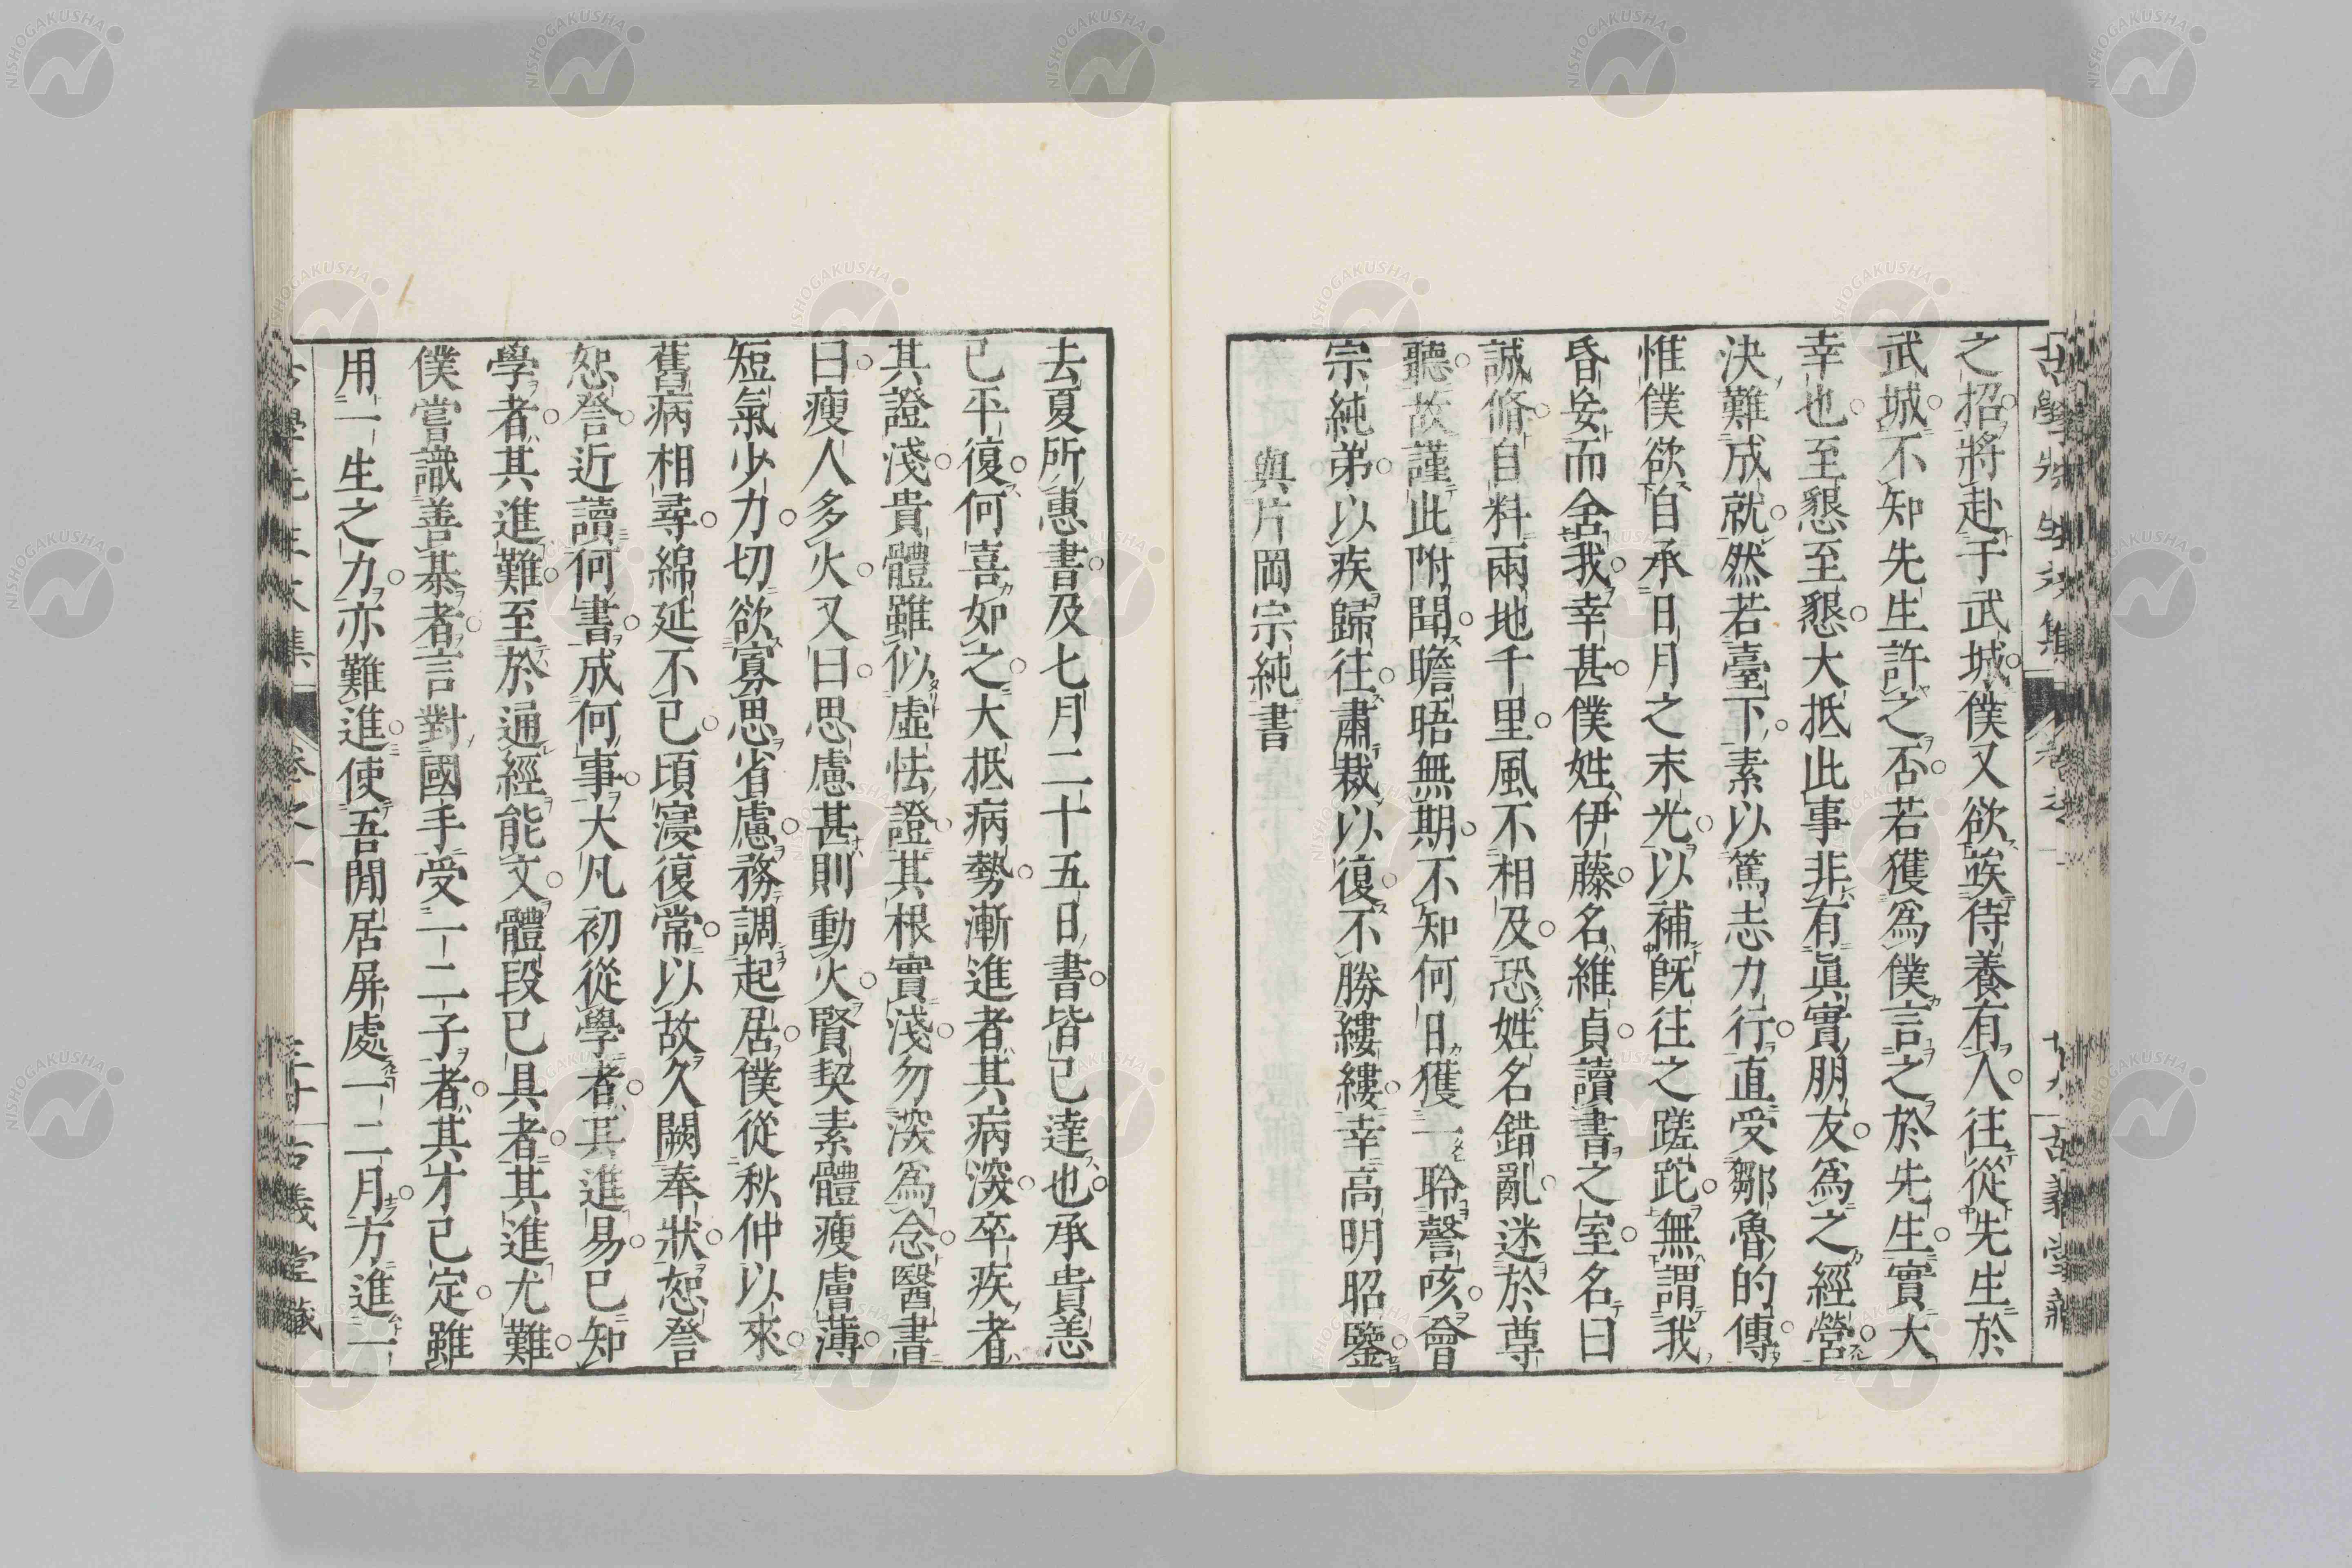 之招將赴于武城僕又欲竢侍養有人往從先生於
武城不知先生許之否若獲爲僕言之於先生實大
幸也至懇至懇大抵此事非有眞實朋友爲之經營
決難成就然若臺下素以篤志力行直受鄒魯的傳
惟僕欲自承日月之末光以補旣往之蹉跎無謂我
昏妄而舍我幸甚僕姓伊藤名維貞讀書之室名曰
誠脩自料兩地千里風不相及恐姓名錯亂迷於尊
聽故謹此附聞瞻晤無期不知何日獲一聆謦咳會
宗純弟以疾歸往肅裁以復不勝縷縷幸高明昭鑒
與片岡宗純書
去夏所惠書及七月二十五日書皆已達也承貴恙
已平復何喜如之大抵病勢漸進者其病深卒疾者
其證淺貴體雖似虛怯證其根實淺勿深爲念醫書
曰瘦人多火又曰思慮甚則動火賢契素體瘦膚薄
短氣少力切欲寡思省慮務調起居僕從秋仲以來
舊病相尋綿延不已頃寖復常以故久闕奉狀恕詧
恕詧近讀何書成何事大凡初從學者其進易已知
學者其進難至於通經能文體段已具者其進尤難
僕嘗識善棊者言對國手受一二子者其才已定雖
用一生之力亦難進使吾閒居屏處一二月方進一